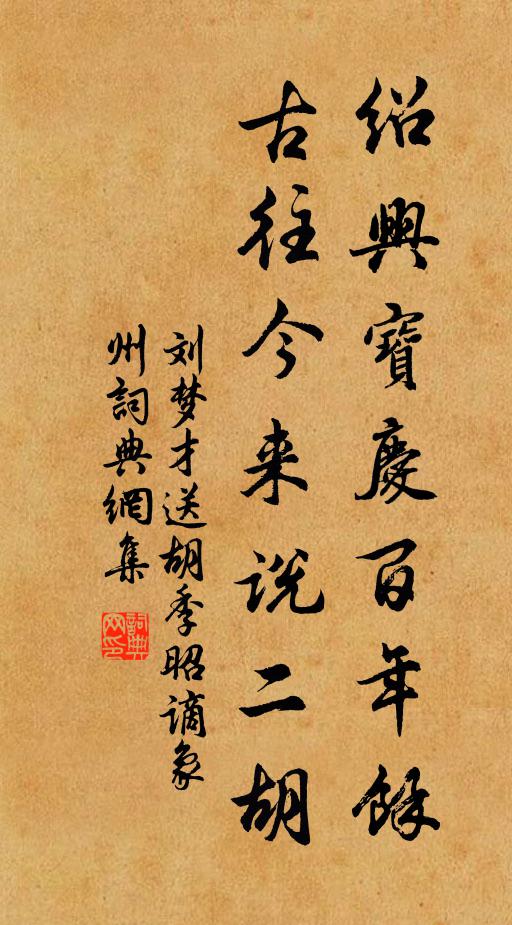 紹興寶慶百年餘
古往今来说二胡
刘梦才送胡季昭谪象
州詞典網集
詞典网印